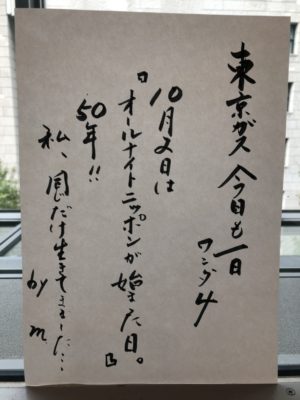 東京ガス 今日も一日
ワンダ4
10月2日は
『オールナイトニッポンが始まった日。』
50年!!
私、同じだけ生きてきました…
by m